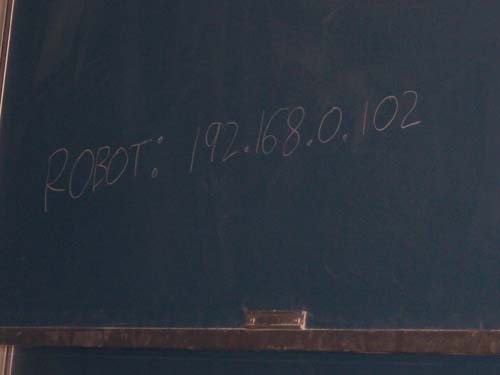 ROBOT: 192.168.0.102